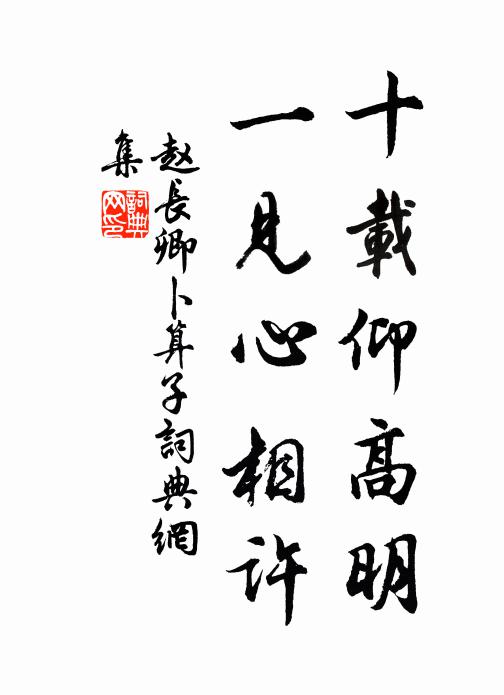 十載仰高明
一見心相许
赵長卿卜算子詞典網
集
詞典
网印